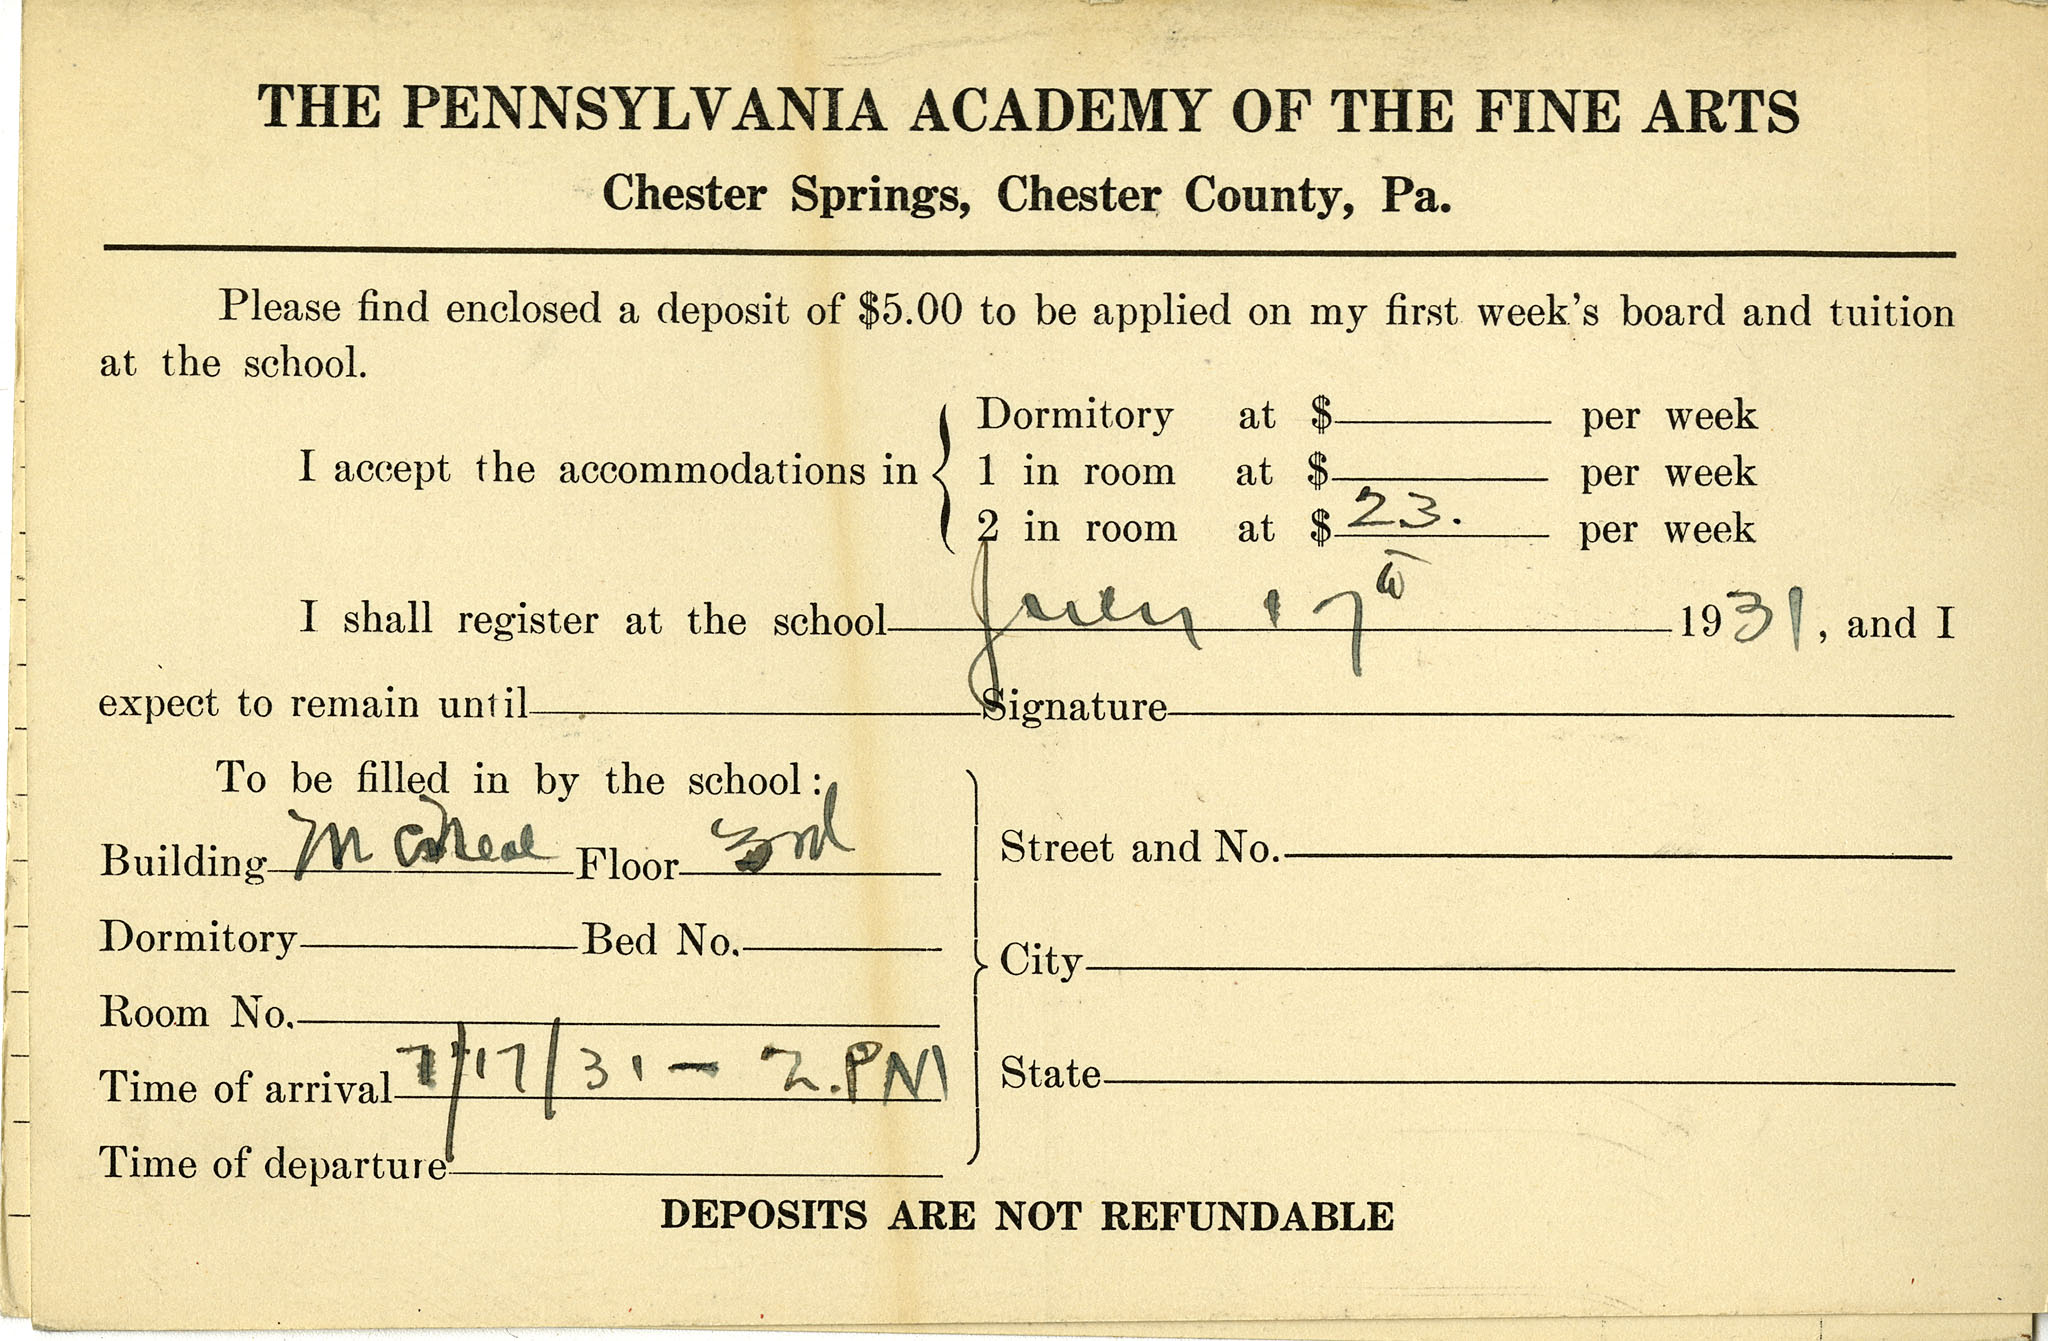 THE PENNSYLVANIA ACADEMY OF THE FINE ARTS
Chester Springs, Chester County, Pa.
Please find enclosed a deposit of $5.00 to be applied on my first week's board and tuition
at the school.
Dormitory at $ per week
I accept the accommodations in 1 in room at $ per week
2 in room at $ 23. per week
I shall register at the school July 17th 1931, and I
expect to remain until Signature
To be filled in by the school:
Building McNeal Floor 3rd
Street and No.
Dormitory Bed No.
City
Room No.
Time of arrival 7/17/31 - 2.PM
State
Time of departure
DEPOSITS ARE NOT REFUNDABLE